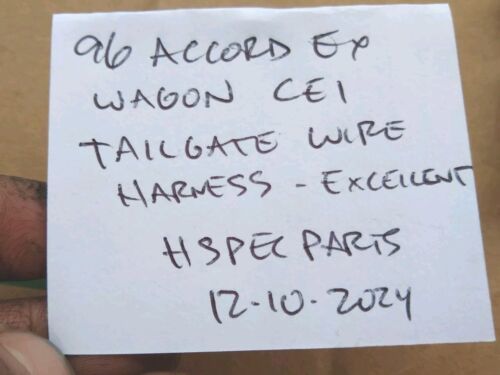 96 ACCORD EX
WAGON CE1
TAILGATE WIRE
HARNESS - EXCELLENT
HSPEC PARTS
12-10-2024